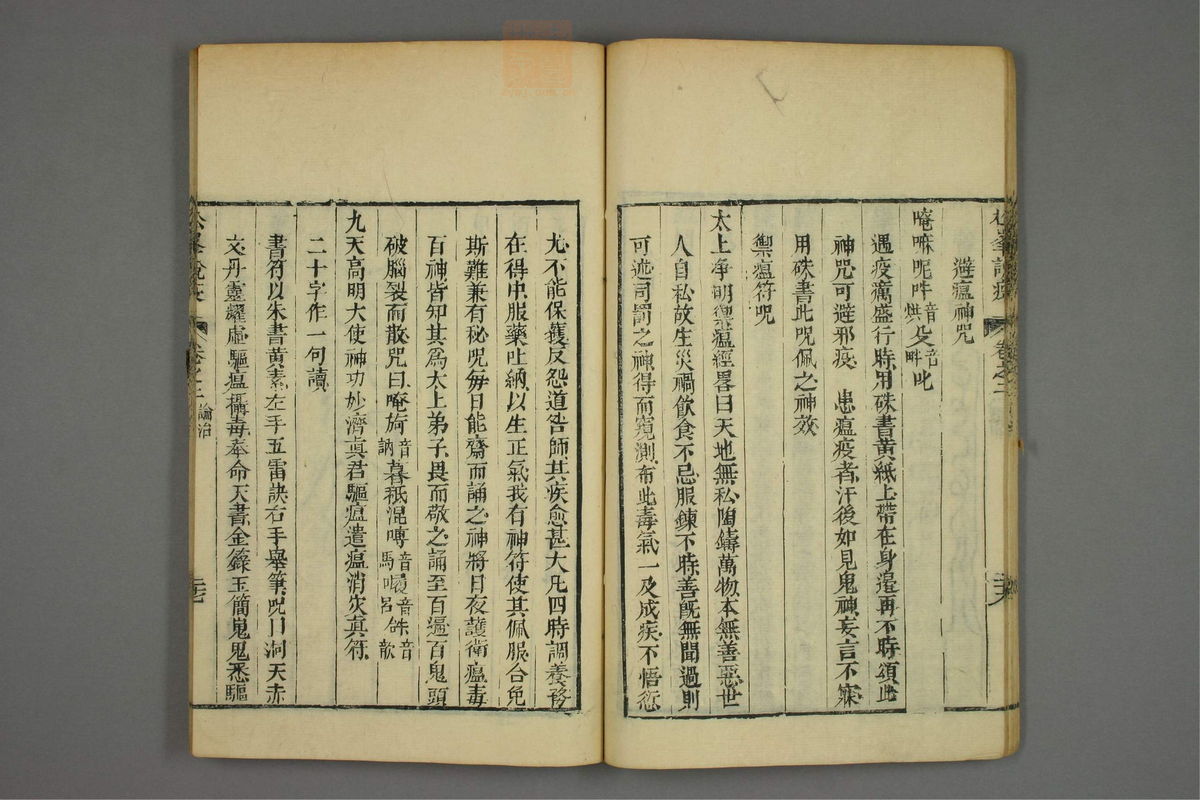 避瘟神咒
唵嘛呢吽音烘癹音畔吡
遇疫癘盛行時用硃書黃紙上帶在身邊再不時頌此
神咒可避邪疫　患瘟疫者汗後如見鬼神妄言不寐
用硃書此咒佩之神效
禦瘟符咒
太上淨明禦瘟經畧曰天地無私陶鑄萬物本無善惡世
人自私故生災禍飲食不忌服鍊不時善旣無聞過則
可述司罰之神得而窺測布此毒氣一及成疾不悟愆
尤不能保䕶反怨道咎師其疾愈甚大凡四時調養務
在得中服藥吐納以生正氣我有神符使其佩服合免
斯難兼有秘咒每日能齋而誦之神將日夜護衛瘟毒
百神皆知其爲太上弟子畏而敬之誦至百遍百鬼頭
破腦裂而散咒曰唵
九天高明大使神功妙濟眞君驅瘟遣瘟消灾眞符
二十字作一句讀
書符以朱書黃素左手五雷訣右手舉筆咒曰洞天赤
文丹靈耀虛驅瘟攝毒奉命天書金籙玉簡鬼鬼悉驅
松峯說疫
卷之二
論治